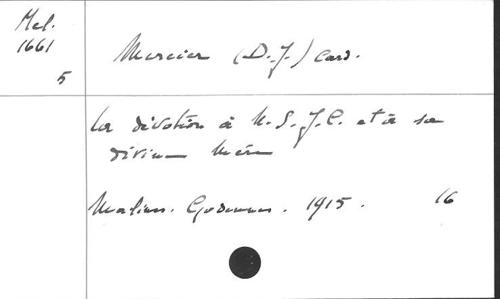 Mel.
1661
5
Mercier (D.-J.) Card.
La dévotion à N.-S.-J.C. et à sa
divine Mère
Malines. Godenne. 1915. 16